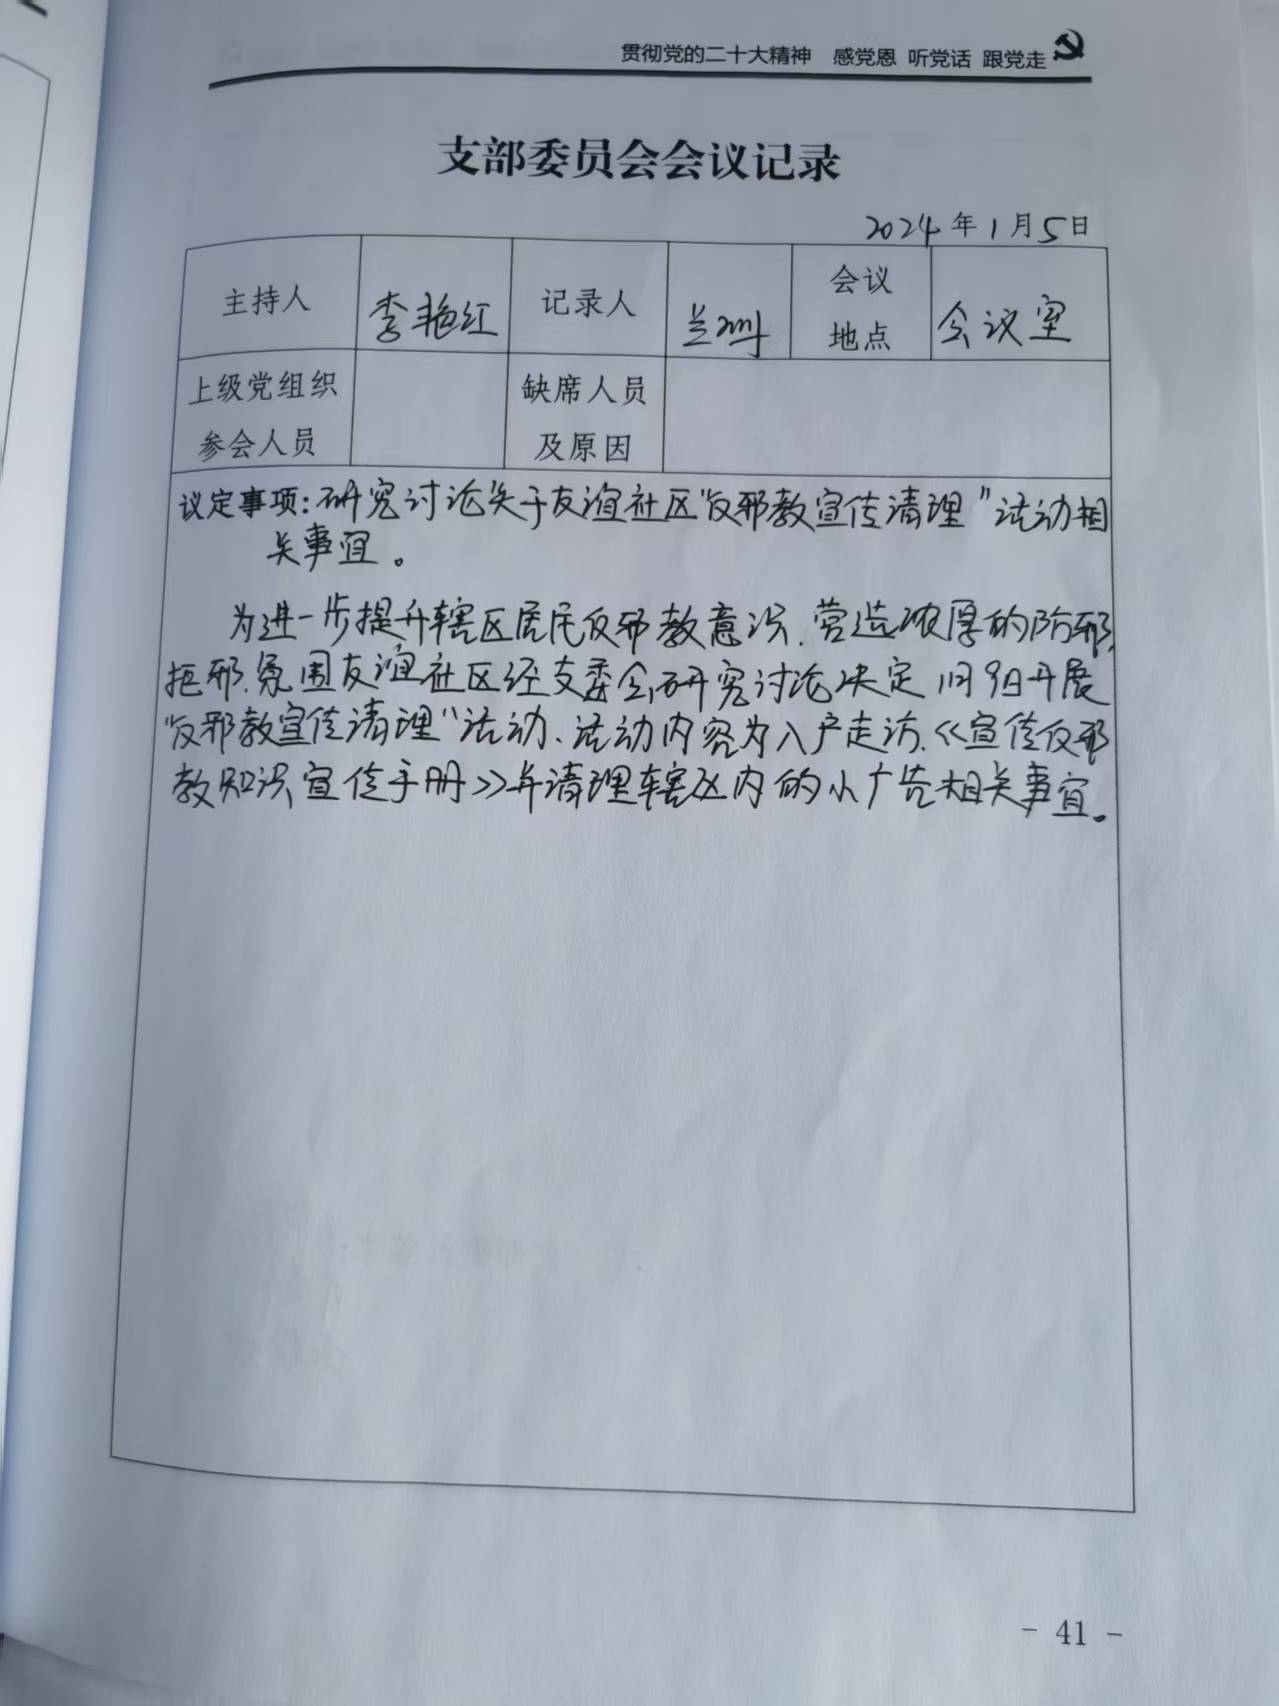 贯彻党的二十大精神 感党恩 听党话 跟党走
支部委员会会议记录
2024年1月5日
主持人 李艳红 记录人 兰珊 会议地点 会议室
上级党组织参会人员 缺席人员及原因
议定事项:研究讨论"关于友谊社区"反邪教宣传清理"活动相
关事宜。
为进一步提升辖区居民反邪教意识、营造浓厚的防邪、
拒邪、氛围友谊社区经支委会研究讨论决定1月9日开展
"反邪教宣传清理"活动、活动内容为入户走访、《宣传反邪
教知识宣传手册》并清理辖区内的小广告相关事宜。
- 41 -